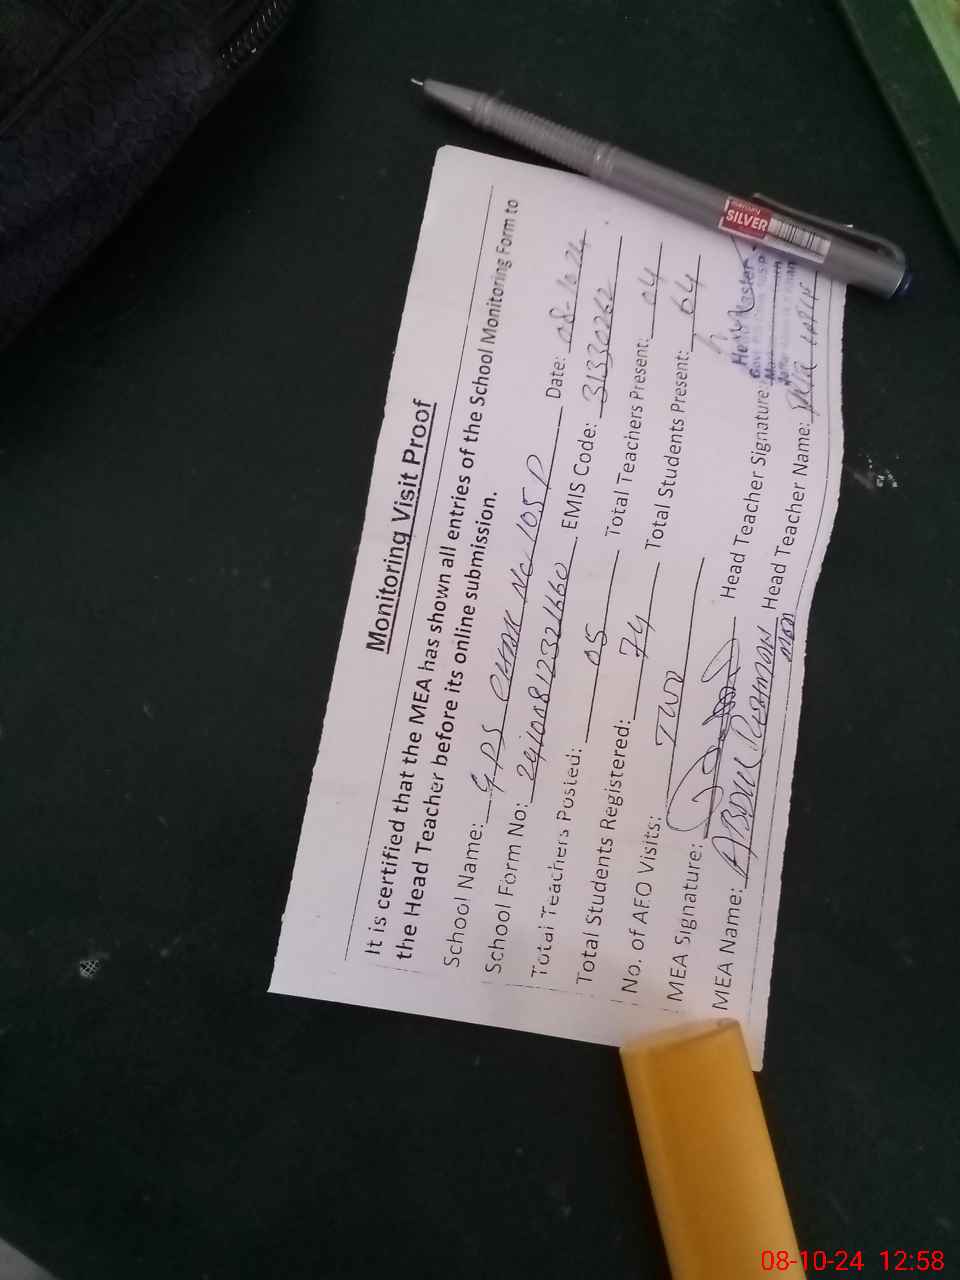 Monitoring Visit Proof
It is certified that the MEA has shown all entries of the School Monitoring Form to
the Head Teacher before its online submission.
School Name: GPS CHAK No 105 P Date: 08-10-24
School Form No: EMIS Code: 31330262
Total Teachers Posted: 05 Total Teachers Present: 04
Total Students Registered: 74 Total Students Present: 64
No. of AEO Visits: TWO
MEA Signature: Head Teacher Signature:
Head Master
MEA Name: ABDUL REHMAN Head Teacher Name:
SILVER
08-10-24 12:58